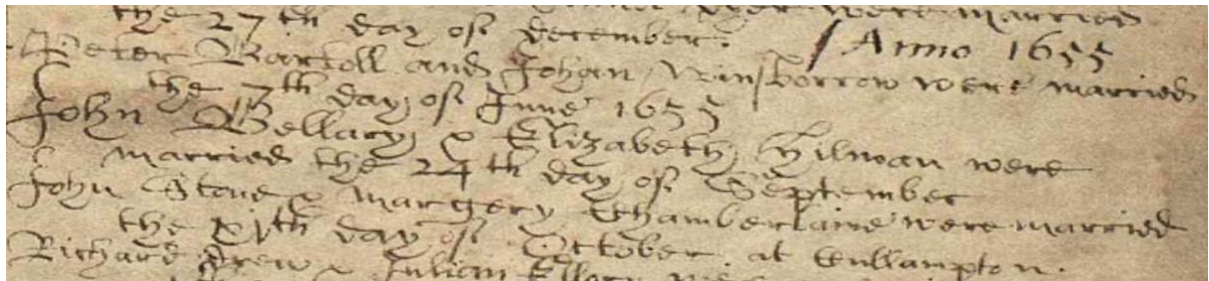 were married
the 27th day of december.
Anno 1655
Peter Bartoll and Johan Winsborrow were married
the 7th day of June 1655
John Bellary & Elizabeth Hilman were
married the 24th day of September
John Stone & Margery Chamberlaine were married
the xvth day of October at Cullampton.
Richard Drew & Julian